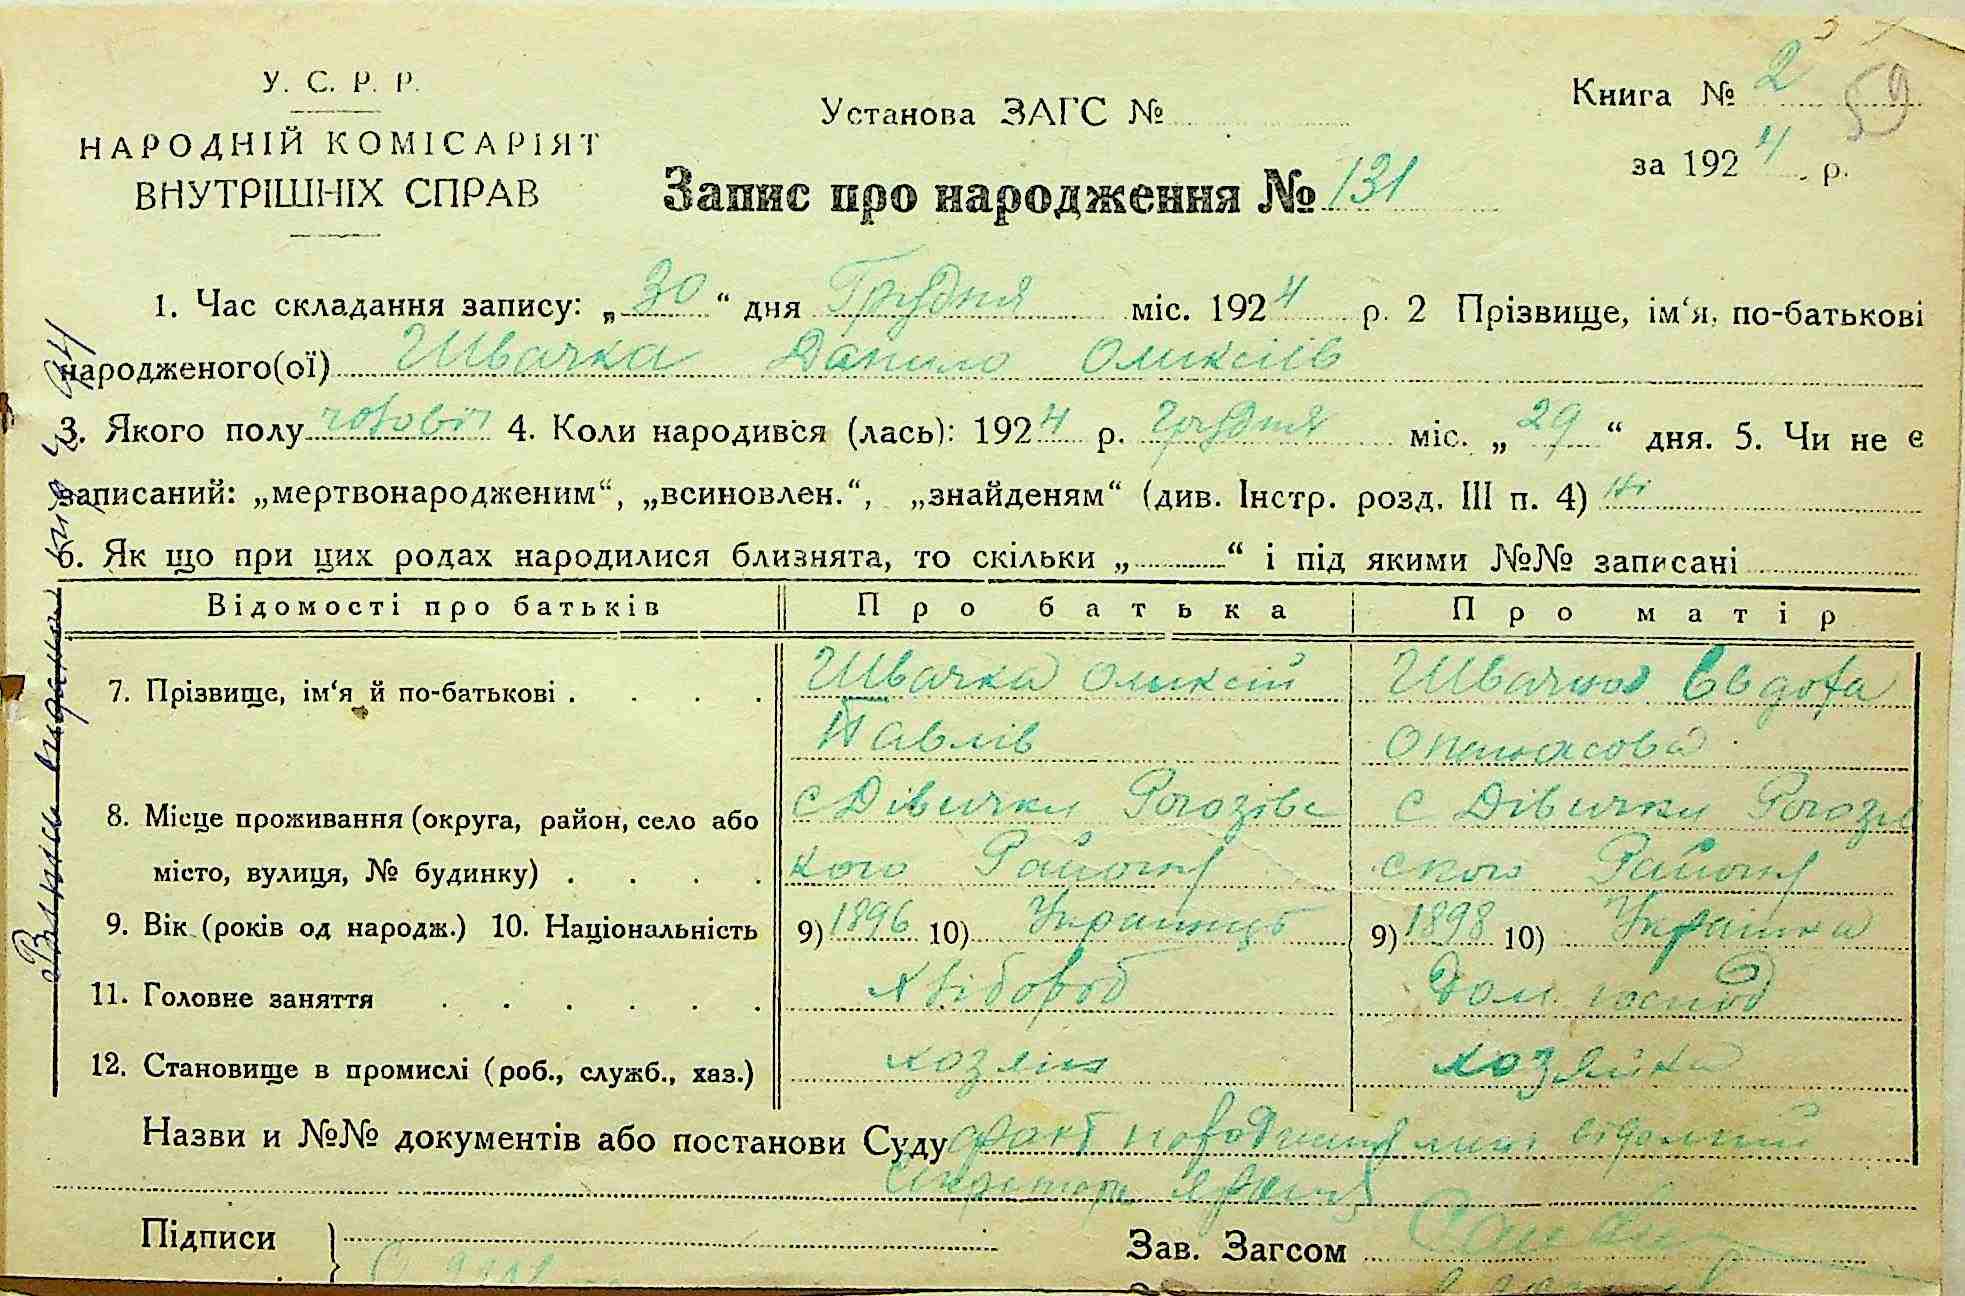 У. С. Р. Р.
НАРОДНІЙ КОМІСАРІЯТ
ВНУТРІШНІХ СПРАВ
Установа ЗАГС №
Книга № 2
59
за 1924 р.
Запис про народження № 131
1. Час складання запису: „30“ дня Грудня міс. 1924 р. 2 Прізвище, ім‘я, по-батькові
народженого(ої) Швачка Данило Оликсіїв
3. Якого полу чоловіч 4. Коли народився (лась): 1924 р. грудня міс. „29“ дня. 5. Чи не є
записаний: „мертвонародженим“, „всиновлен.“, „знайденям“ (див. Інстр. розд. III п. 4) ні
6. Як що при цих родах народилися близнята, то скільки „ “ і під якими №№ записані
Відомості про батьків Про батька Про матір
7. Прізвище, ім‘я й по-батькові . . . . Швачка Оликсій Швачка Евдокa
Павлів Опанасова
8. Місце проживання (округа, район, село або с Дівички Рогозівс с Дівички Рогозів
місто, вулиця, № будинку) . . . . кого Району ского Району
9. Вік (років од народж.) 10. Національність 9) 1896 10) Украинець 9) 1898 10) Украинка
11. Головне заняття . . . . . . хлібороб Дом. господ
12. Становище в промислі (роб., служб., хаз.) хозяин хозяйка
Назви и №№ документів або постанови Суду факт народження мині відомий
Підписи
Зав. Загсом